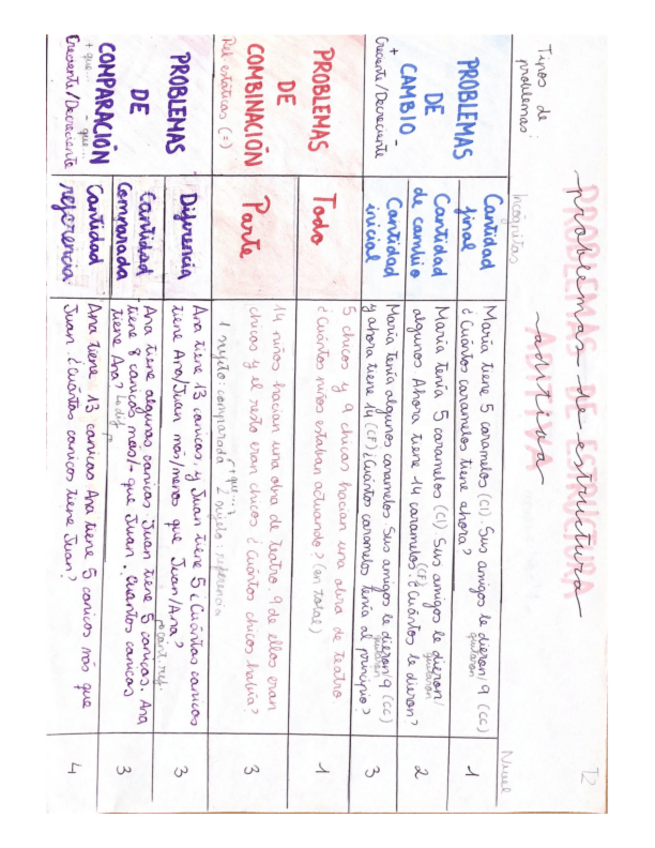 T2
PROBLEMAS DE ESTRUCTURA
problemas de estructura
ADITIVA
aditiva
Tipos de problemas:
Incógnitas
Nivel
PROBLEMAS
DE
CAMBIO
+ -
Creciente/Decreciente
Cantidad
final
María tiene 5 caramelos (CI). Sus amigos le dieron/ 9 (CC)
quitaron
¿Cuántos caramelos tiene ahora?
1
Cantidad
de cambio
María tenía 5 caramelos (CI) Sus amigos le dieron/
quitaron
algunos Ahora tiene 14 caramelos. ¿Cuántos le dieron?
(CF)
2
Cantidad
inicial
María tenía algunos caramelos. Sus amigos le dieron/ 9 (CC)
quitaron
y ahora tiene 14 (CF) ¿Cuántos caramelos tenía al principio?
3
PROBLEMAS
DE
COMBINACIÓN
Rel. estáticas (=)
Todo
5 chicos y 9 chicas hacían una obra de teatro.
¿Cuántos niños estaban actuando? (en total)
1
Parte
14 niños hacían una obra de teatro. 9 de ellos eran
chicas y el resto eran chicos ¿Cuántos chicos había?
3
PROBLEMAS
DE
COMPARACIÓN
+ que... - que...
Creciente/Decreciente
1 sujeto: comparada 2 sujeto: referencia
+ que...
Diferencia
Ana tiene 13 canicas, y Juan tiene 5 ¿Cuántas canicas
tiene Ana/Juan más/menos que Juan/Ana?
3
Cantidad
Comparada
cant. ref.
Ana tiene algunas canicas. Juan tiene 5 canicas. Ana
tiene 8 canicas más/- que Juan. Cuantas canicas
tiene Ana?
3
Cantidad
referencia
Ana tiene 13 canicas Ana tiene 5 canicas más que
Juan. ¿Cuántas canicas tiene Juan?
4